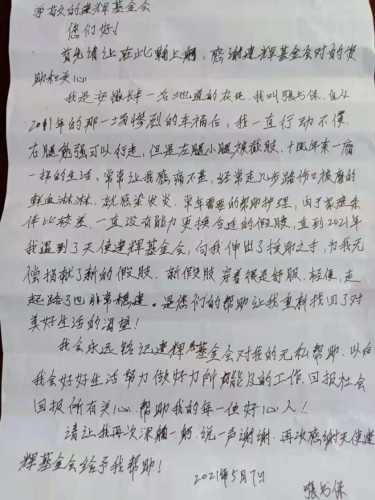 尊敬的建辉基金会
您们好!
首先请让在此鞠上躬,感谢建辉基金会对我的资
助和关心
我是安徽长丰一名地道的农民,我叫张马保,自从
2011年的那一场惨烈的车祸后,我一直行动不便
右腿勉强可以行走,但是左腿小腿以下截肢,十几年来一瘸
一拐的生活,常常让我感痛不甚,经常走几步路伤口换磨的
鲜血淋淋,就感染发炎,常年需要的帮助护理,由于家庭条
件比较差,一直没有能力更换合适的假肢,直到2021年
我遇到了天使建辉基金会,向我伸出了援助之手,为我无
偿捐献了新的假肢,新假肢穿着很是舒服,轻便,走
起路了也非常稳健,是您们的帮助让我重新找回了对
美好生活的渴望!
我会永远铭记建辉基金会对我的无私帮助,以后
我会好好生活努力做好力所能及的工作,回报社会
回报所有关心,帮助我的每一位好心人!
请让我再次深鞠一躬,说一声谢谢,再次感谢天使建
辉基金会给予我帮助!
2021年5月7日